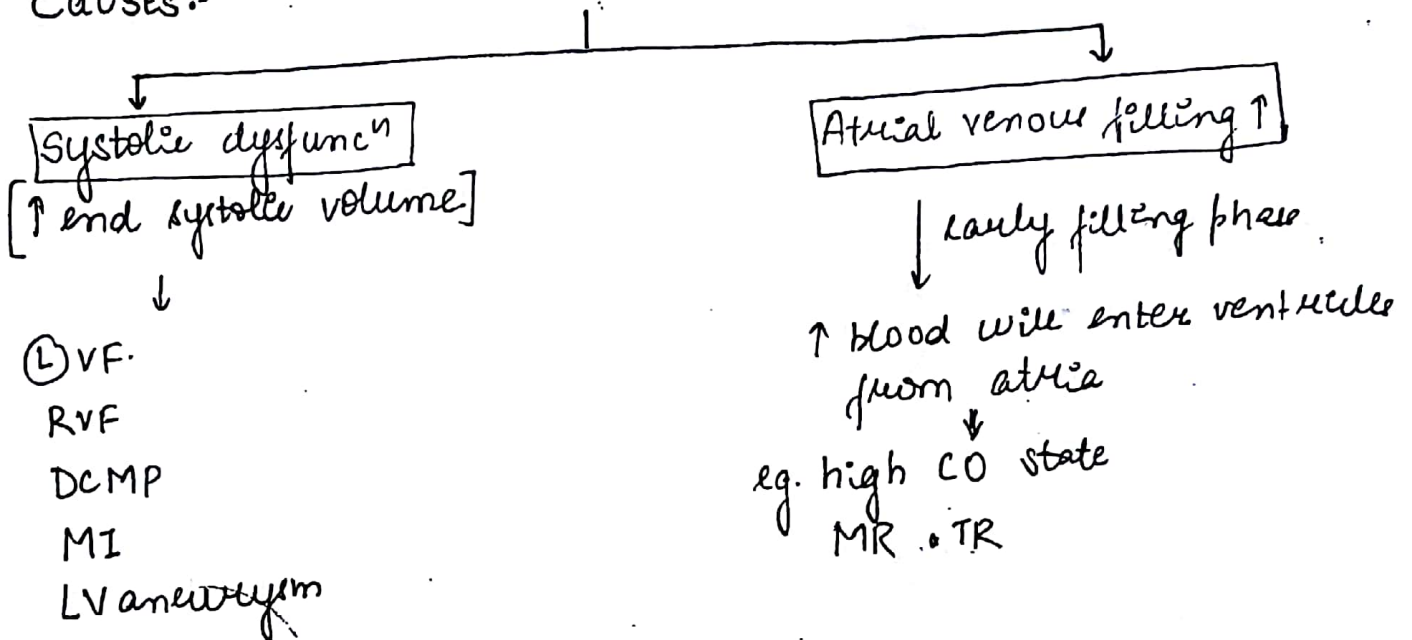 Causes:-
Systolic dysfuncⁿ
[↑ end systolic volume]
↓
Ⓛ VF.
RVF
DCMP
MI
LV aneurysm
Atrial venous filling ↑
↓ early filling phase.
↑ blood will enter ventricles
from atria
↓
eg. high CO state
MR . TR